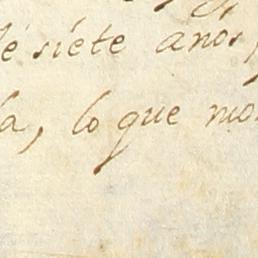 de siete años,
a, lo que mo